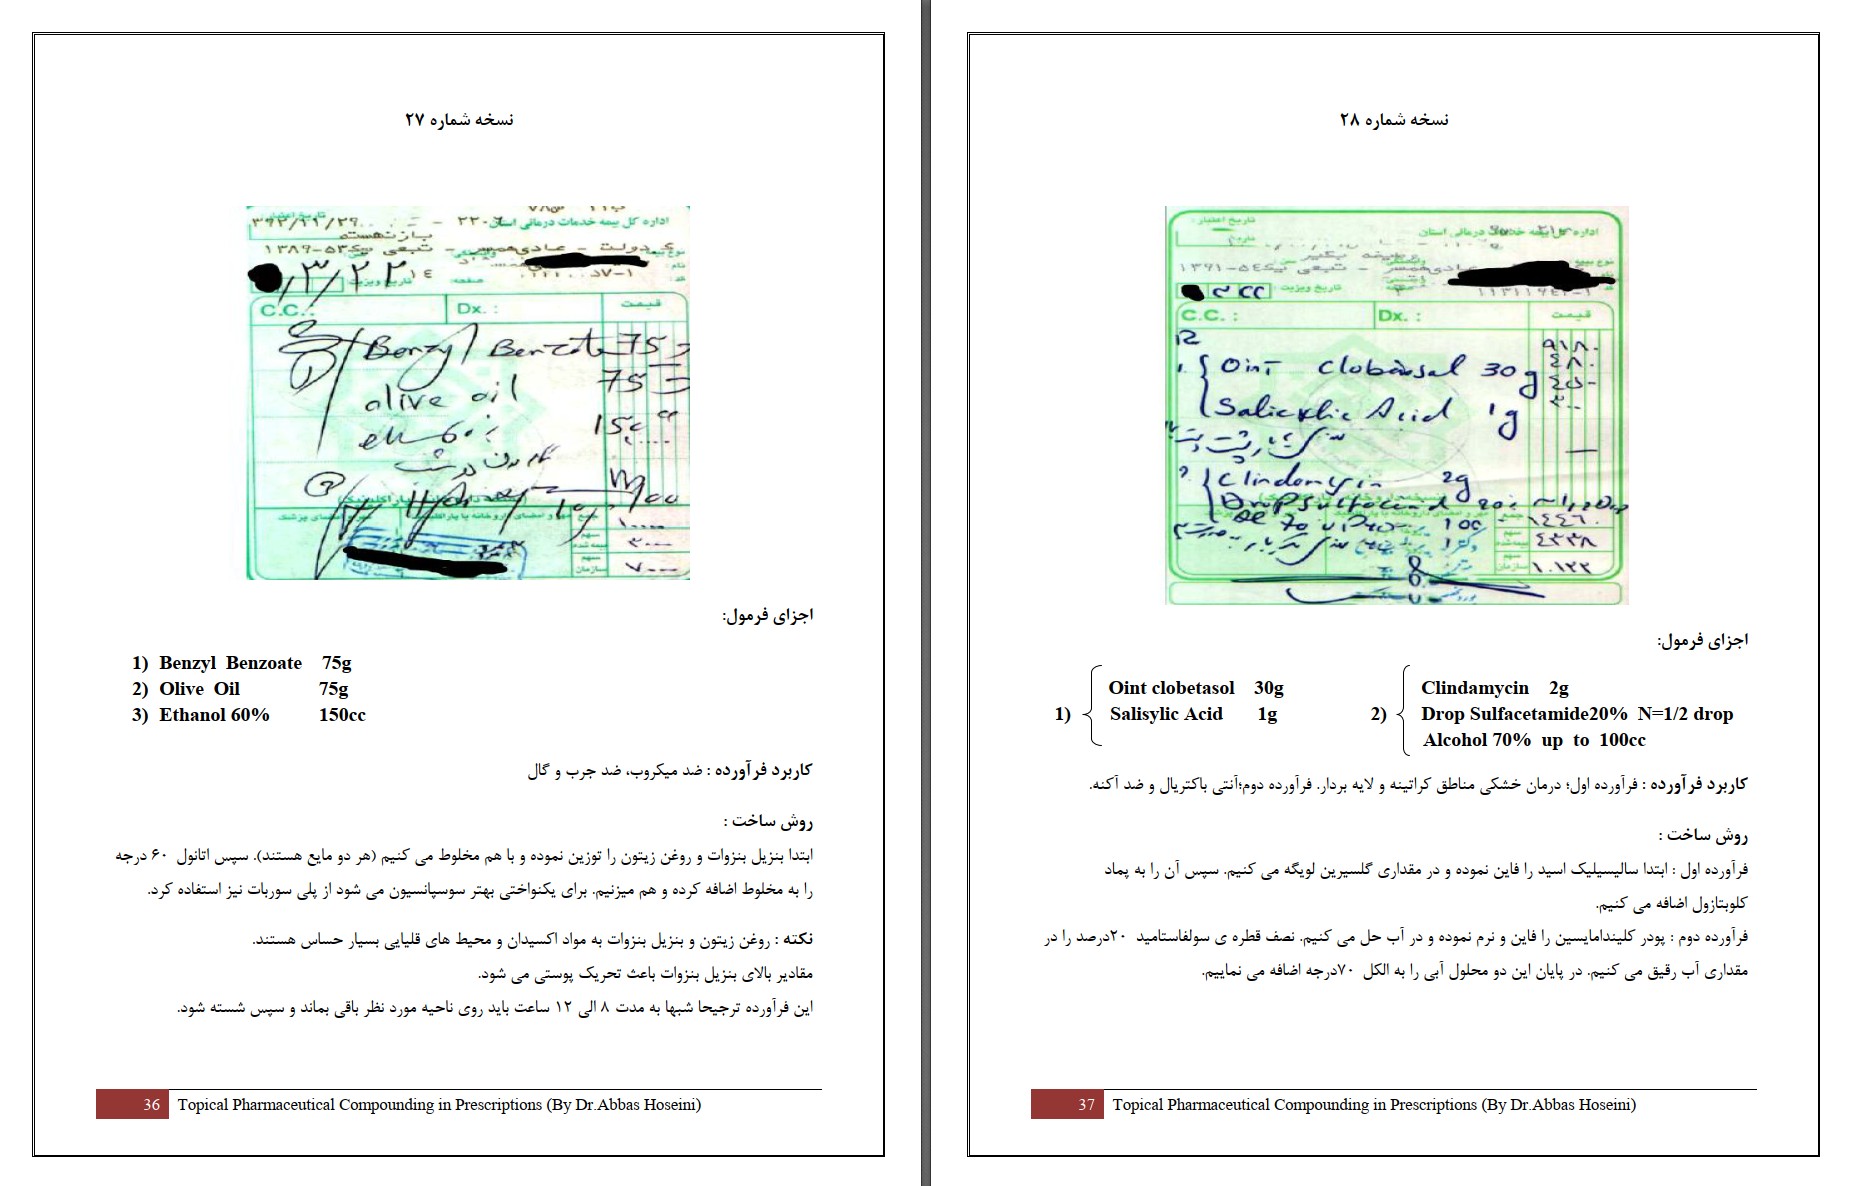 نسخه شماره ۲۷
اداره کل بیمه خدمات درمانی استان
تاریخ اعتبار :
بازنشسته
نوع بیمه
صفحه:
تاریخ ویزیت :
۱۴
C.C. :
Dx. :
قیمت
Benzyl Benzoate 75
75
olive oil
150
اجزای فرمول:
1) Benzyl Benzoate 75g
2) Olive Oil 75g
3) Ethanol 60% 150cc
کاربرد فرآورده : ضد میکروب، ضد جرب و گال
روش ساخت :
ابتدا بنزیل بنزوات و روغن زیتون را توزین نموده و با هم مخلوط می کنیم (هر دو مایع هستند). سپس اتانول ۶۰ درجه
را به مخلوط اضافه کرده و هم میزنیم. برای یکنواختی بهتر سوسپانسیون می شود از پلی سوربات نیز استفاده کرد.
نکته : روغن زیتون و بنزیل بنزوات به مواد اکسیدان و محیط های قلیایی بسیار حساس هستند.
مقادیر بالای بنزیل بنزوات باعث تحریک پوستی می شود.
این فرآورده ترجیحا شبها به مدت ۸ الی ۱۲ ساعت باید روی ناحیه مورد نظر باقی بماند و سپس شسته شود.
36 Topical Pharmaceutical Compounding in Prescriptions (By Dr.Abbas Hoseini)
نسخه شماره ۲۸
تاریخ اعتبار :
اداره کل بیمه خدمات درمانی استان
نوع بیمه
تاریخ ویزیت :
C.C. :
Dx. :
قیمت
1. Oint Clobetasol 30g
Salicylic Acid 1g
2. Clindamycin 2g
اجزای فرمول:
1) Oint clobetasol 30g
Salisylic Acid 1g
2) Clindamycin 2g
Drop Sulfacetamide20% N=1/2 drop
Alcohol 70% up to 100cc
کاربرد فرآورده : فرآورده اول؛ درمان خشکی مناطق کراتینه و لایه بردار. فرآورده دوم؛آنتی باکتریال و ضد آکنه.
روش ساخت :
فرآورده اول : ابتدا سالیسیلیک اسید را فاین نموده و در مقداری گلسیرین لویگه می کنیم. سپس آن را به پماد
کلوبتازول اضافه می کنیم.
فرآورده دوم : پودر کلیندامایسین را فاین و نرم نموده و در آب حل می کنیم. نصف قطره ی سولفاستامید ۲۰درصد را در
مقداری آب رقیق می کنیم. در پایان این دو محلول آبی را به الکل ۷۰درجه اضافه می نماییم.
37 Topical Pharmaceutical Compounding in Prescriptions (By Dr.Abbas Hoseini)